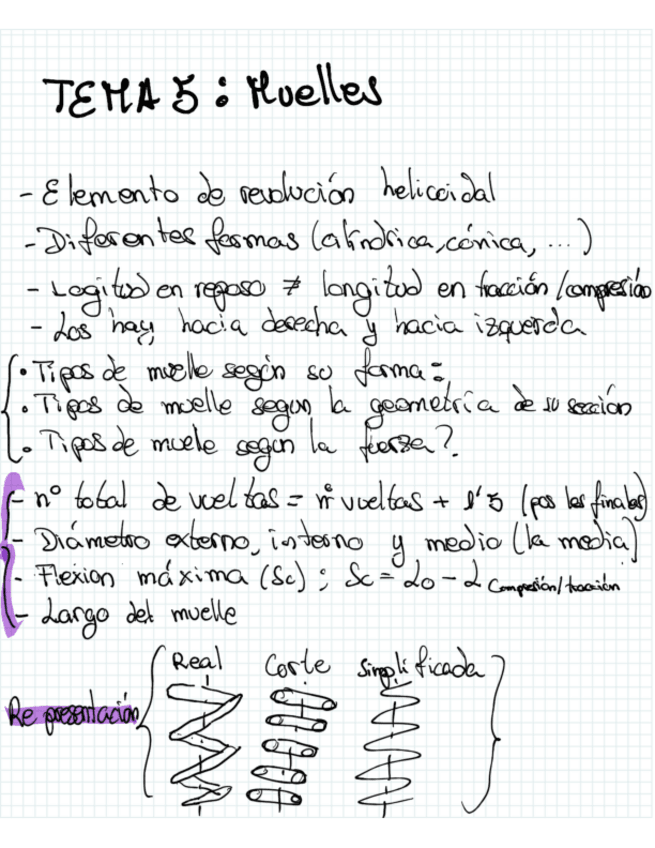 TEMA 5: Muelles
- Elemento de revolución helicoidal
- Diferentes formas (cilíndrica, cónica, ...)
- Logitud en reposo ≠ longitud en tracción/compresión
- Los hay hacia derecha y hacia izquerda
• Tipos de muelle según su forma:
• Tipos de muelle segun la geometría de su sección
• Tipos de muelle segun la fuerza?
- nº total de vueltas = nº vueltas + 1'5 (por las finales)
- Diámetro externo, interno y medio (la media)
- Flexion máxima (Sc); Sc = L0 - L compresión/tracción
- Largo del muelle
Real Corte Simplificada
Representación